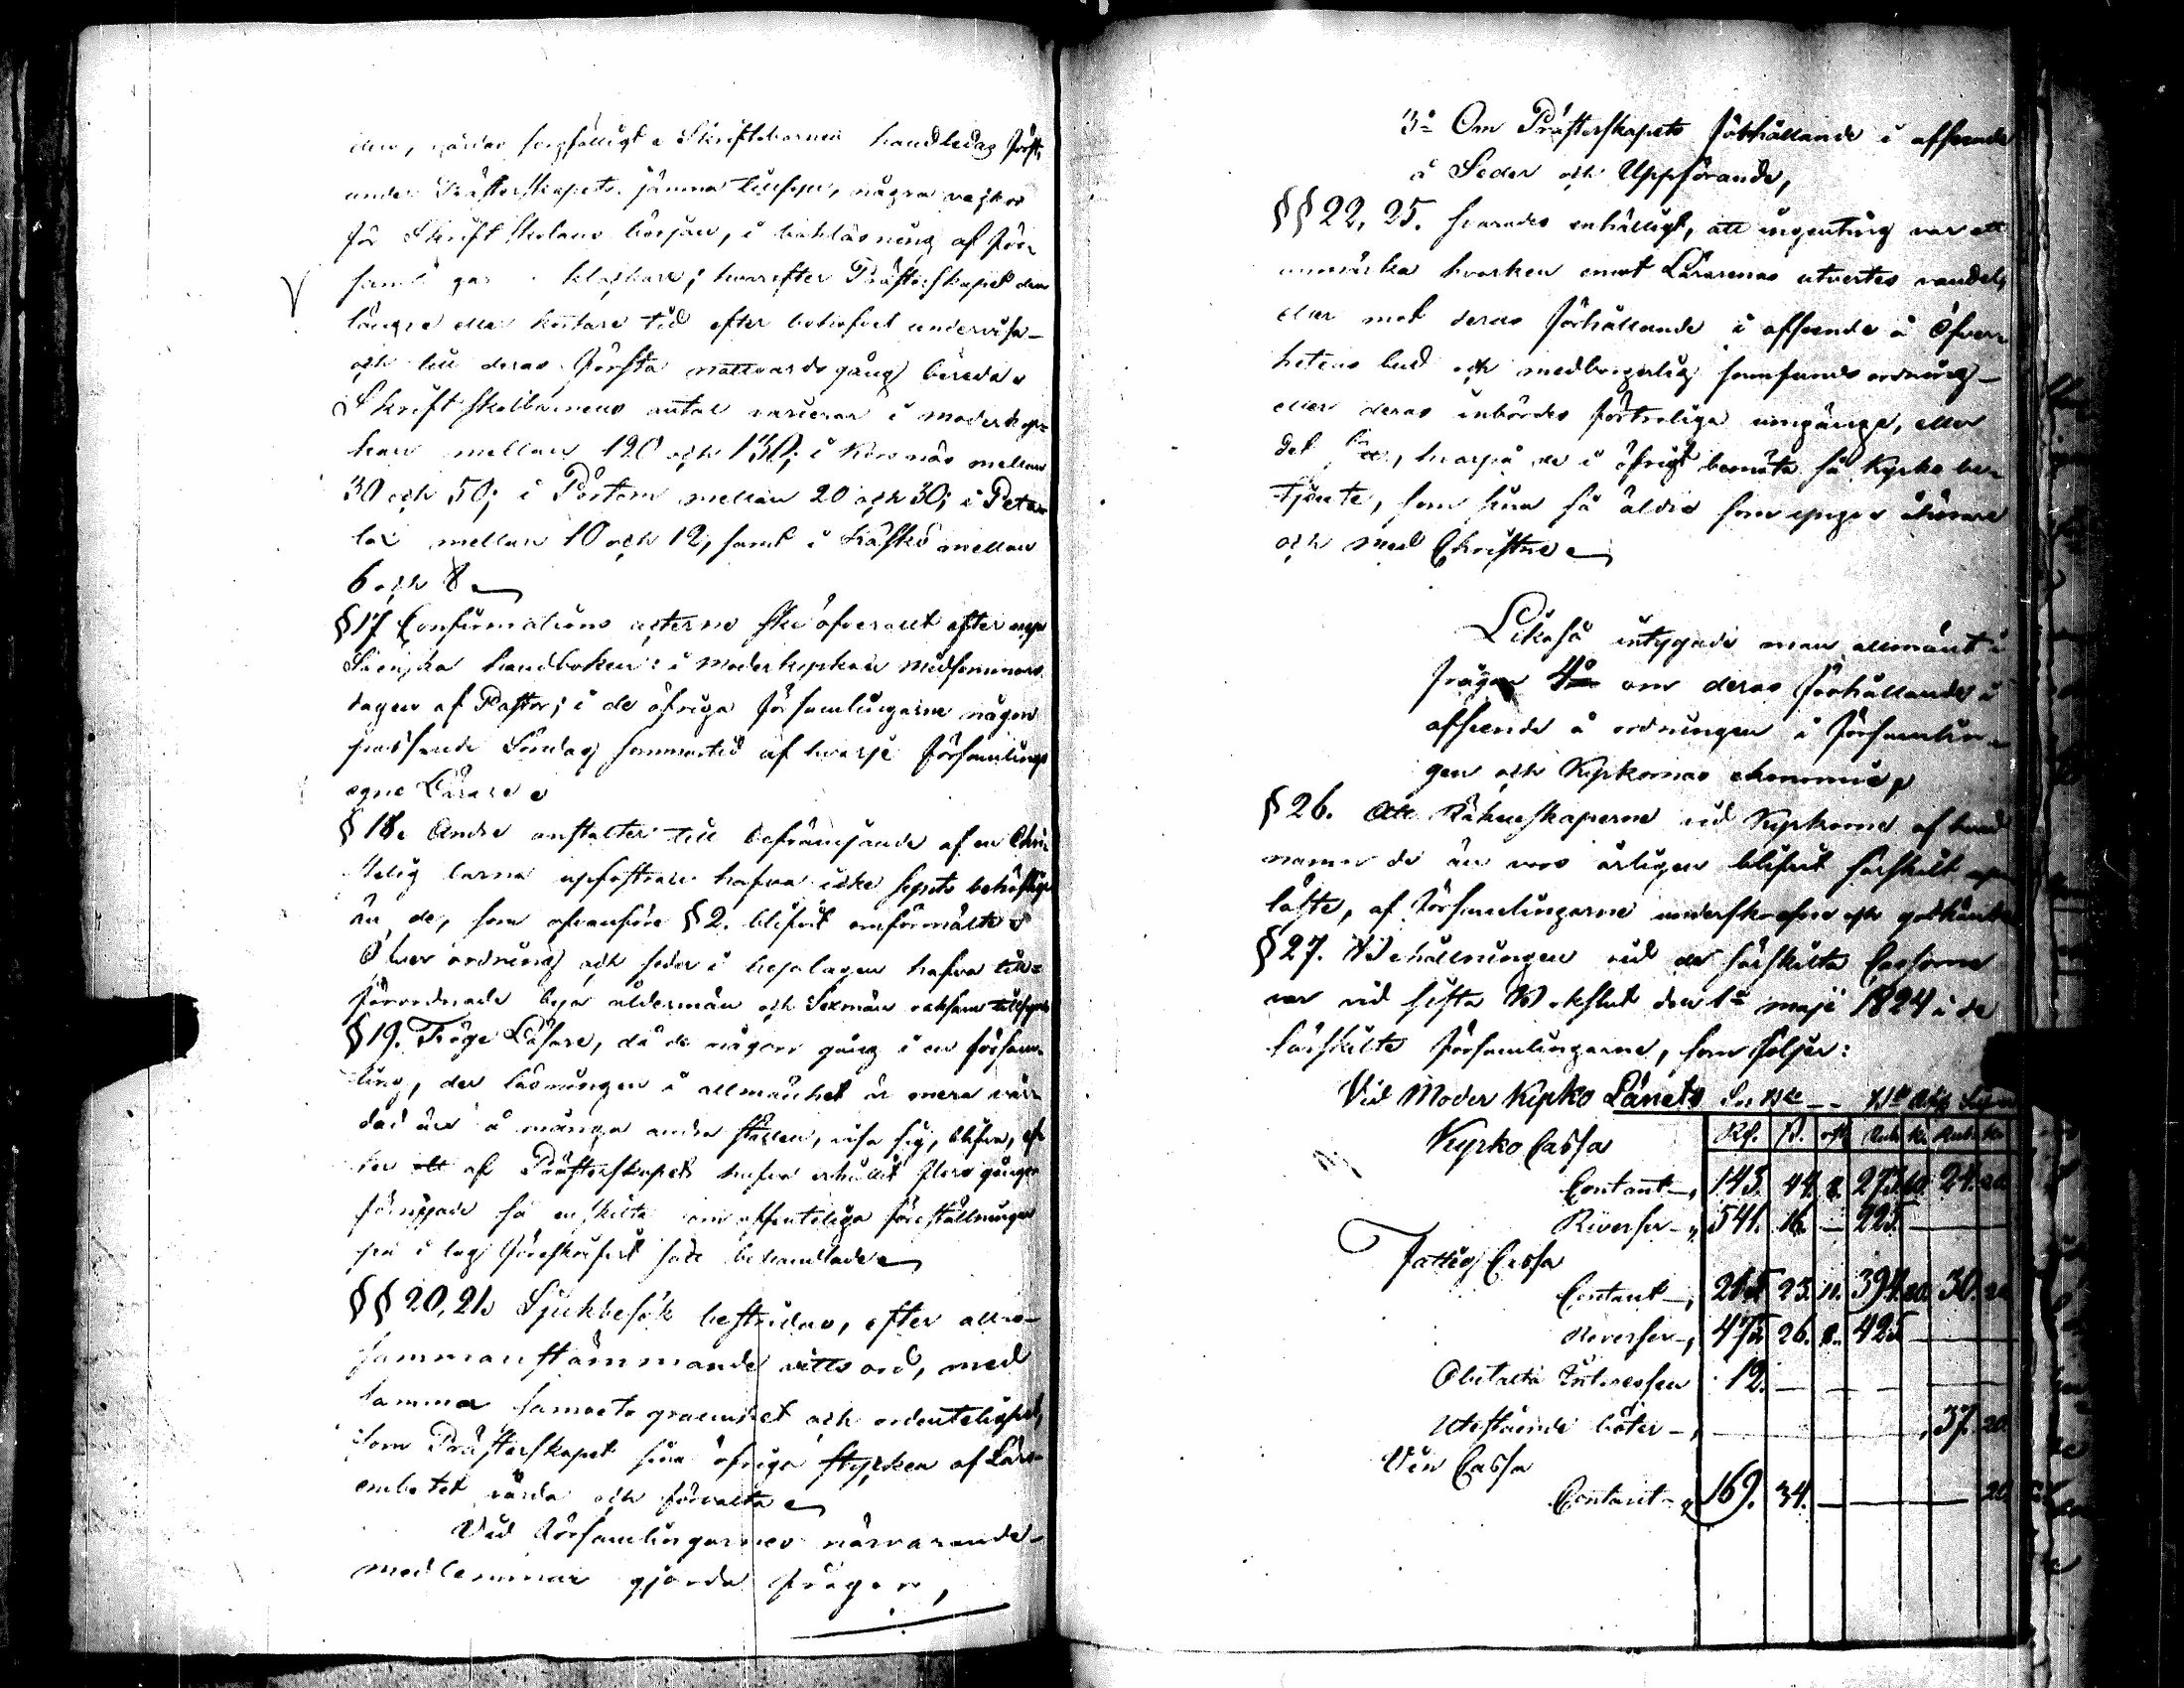 under Prästerskapets jämna tillsyn, några veckor
för Skriftskolans början, i bokläsning af för-
klockare; hvarefter Prästerskapet dem
längre eller kortare tid efter behofvet undervisa
och till deras första nattvardsgång bereda.
Skriftskolbarnens antal varierar i moderkyr-
kan mellan 120 och 130; i Korsnäs mellan
30 och 50; i Pörtom mellan 20 och 30; i Peta-
lax mellan 10 och 12, samt i Kaskö mellan
6 och 8.
§ 17 Confirmations acterne ske öfverallt efter nya
Svenska handboken: i moderkyrkan midsommars
dagen af Pastor; i de öfriga församlingarne någon
passande Söndag sommartid af hvarje församlings
egne Lärare.
§ 18. Andra anstalter till befrämjande af en Chri-
stelig barna uppfostran hafva icke synts behöflige
än de, som ofvanföre § 2. blifvit omförmälte.
Öfver ordning och seder i byalagen hafva till-
förordnade bya åldermän och Sexmän
§ 19. Tröge Läsare, då de någon gång i en församl-
ling, der läsningen i allmänhet är mera vår-
dad än å många andra ställen, visa sig, blifva, ef-
ter att af Prästerskapet hafva erhållit flera gånger
förnyade så enskilta som offenteliga föreställningar
på i lag föreskrifvit sätt behandlade
§§ 20, 21. Sjukbesök bestridas, efter allas
sammanstämmande vittsord, med
samma samvetsgrannhet och ordentelighet,
som Prästerskapet sina öfriga stycken af Läro-
embetet vårda och förvalta
Vid Församlingarnes närvarande
medlemmar gjorda frågor,
3:o Om Prästerskapets förhållande i afseende
å Seder och Uppförande,
§§ 22, 25. svarades enhälligt, att ingenting var att
anmärka hvarken emot Lärarenas utvertes vandel,
eller mot deras förhållande i afseende å Öfver-
hetens bud och medborgerlig samfunds ordning
eller deras inbördes förtroliga umgänge, eller
det sätt, hvarpå de i öfrigt bemöta så Kyrko be-
tjente, som sina så äldre som yngre åhörare
och med Christne
Likaså intygade man allmänt i
frågan 4:o om deras förhållande i
afseende å ordningen i församlin-
gen och Kyrkornas ekonomie,
§ 26. Att Räkenskaperne vid Kyrkorne af hvad
namn de än vors årligen blifvit särskilt upp-
läste, af Församlingarne underskrefne och godkände
§ 27. Behållningen vid de särskilta Cassorne
var vid sista Bokslut den 1:a maji 1824 i de
särskilte församlingarne, som följer:
Vid Moder Kyrko Länets
Kyrko Cassa
Contant 143. 44. 8. 273. 60. 24. 20
Reverser 541. 16. — 225. —
Fattig Cassa
Contant 23. 11. 394. 80. 30.
Reverser 475 26. 8. 425 —
Obetalta Intressen 12. —
Utestående böter — 37. 20
Vin Cassa
Contant 169. 34. — 20